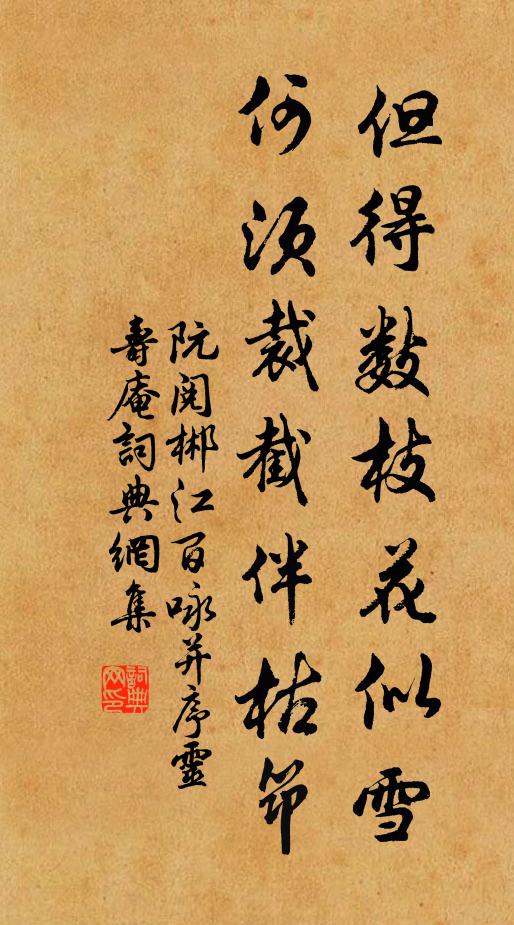 但得数枝花似雪
何须裁截伴枯筇
阮阅郴江百咏并序靈
壽庵詞典網集
詞典网印